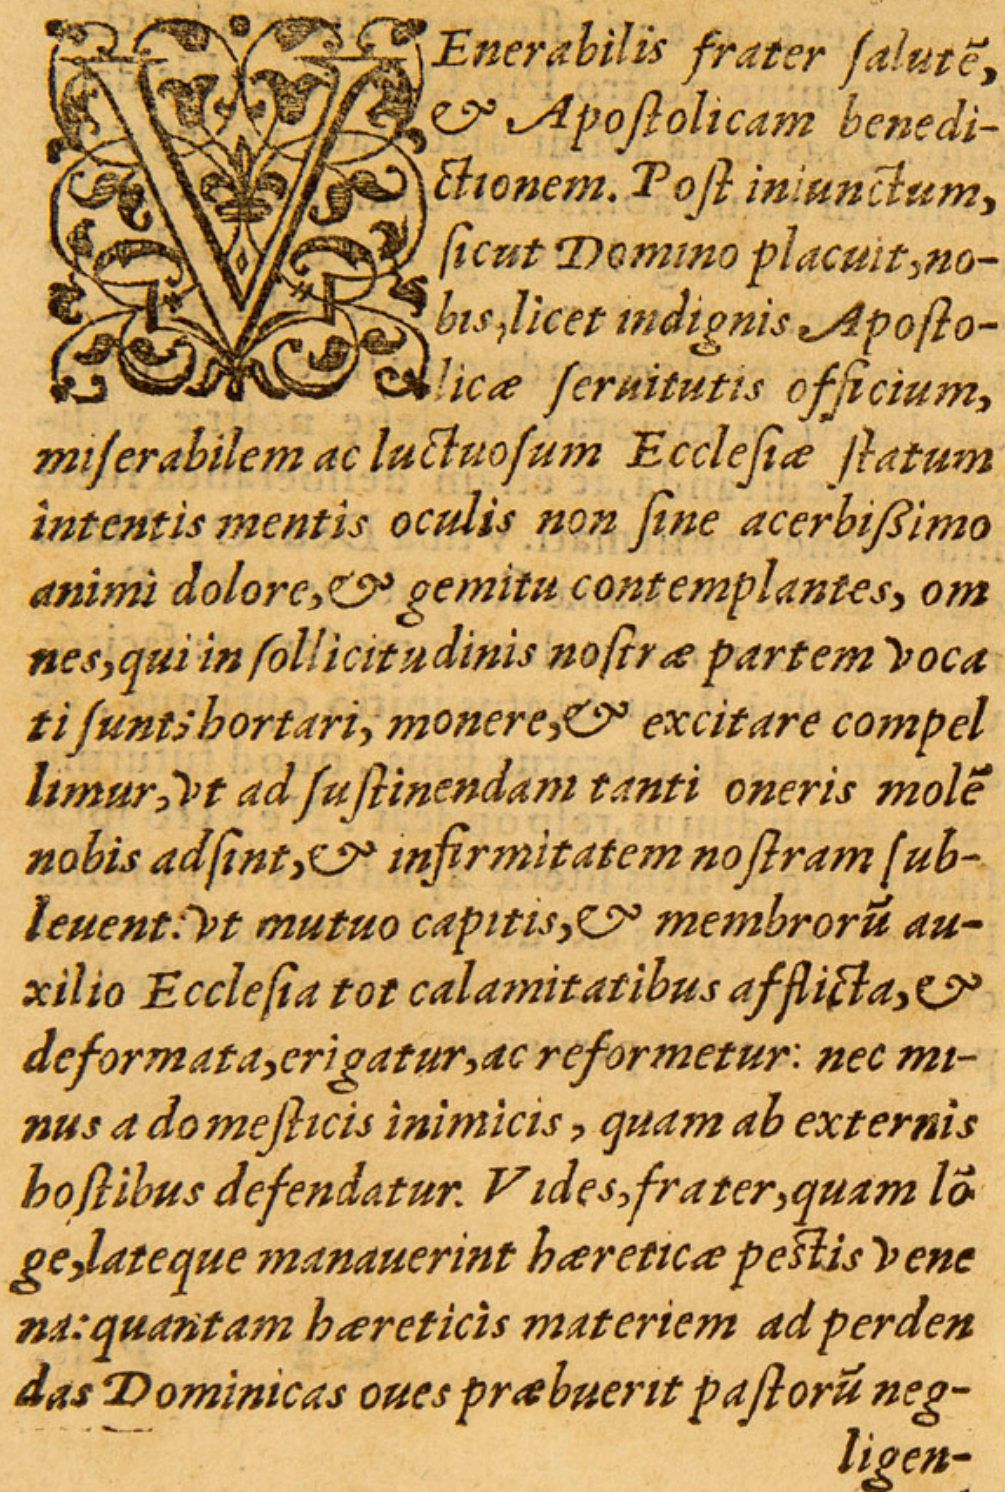 VEnerabilis frater ſalutē,
& Apoſtolicam benedi-
ctionem. Poſt iniunctum,
ſicut Domino placuit, no-
bis, licet indignis Apoſto-
licæ ſeruitutis officium,
miſerabilem ac luctuoſum Eccleſiæ ſtatum
intentis mentis oculis non ſine acerbißimo
animi dolore, & gemitu contemplantes, om
nes, qui in ſollicitudinis noſtræ partem voca
ti ſunt; hortari, monere, & excitare compel
limur, vt ad ſuſtinendam tanti oneris molē
nobis adſint, & infirmitatem noſtram ſub-
leuent: vt mutuo capitis, & membrorū au-
xilio Eccleſia tot calamitatibus afflicta, &
deformata, erigatur, ac reformetur: nec mi-
nus a domeſticis inimicis, quam ab externis
hoſtibus defendatur. Vides, frater, quam lō
ge, lateque manauerint hæreticæ peſtis vene
na: quantam hæreticis materiem ad perden
das Dominicas oues præbuerit paſtorū neg-
ligen-